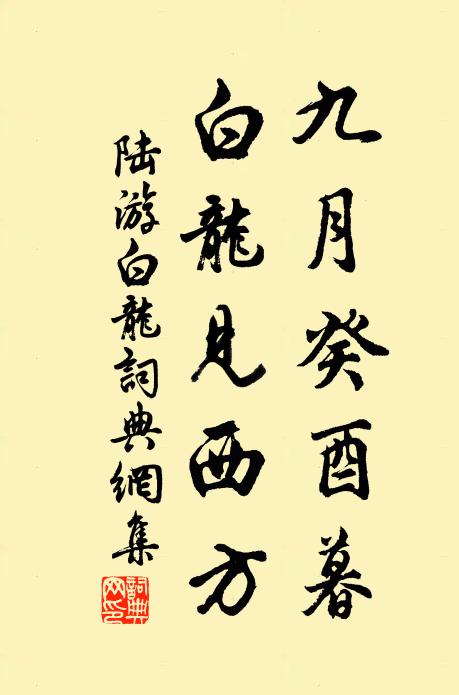 九月癸酉暮
白龍見西方
陸游白龍詞典網集
詞典網印